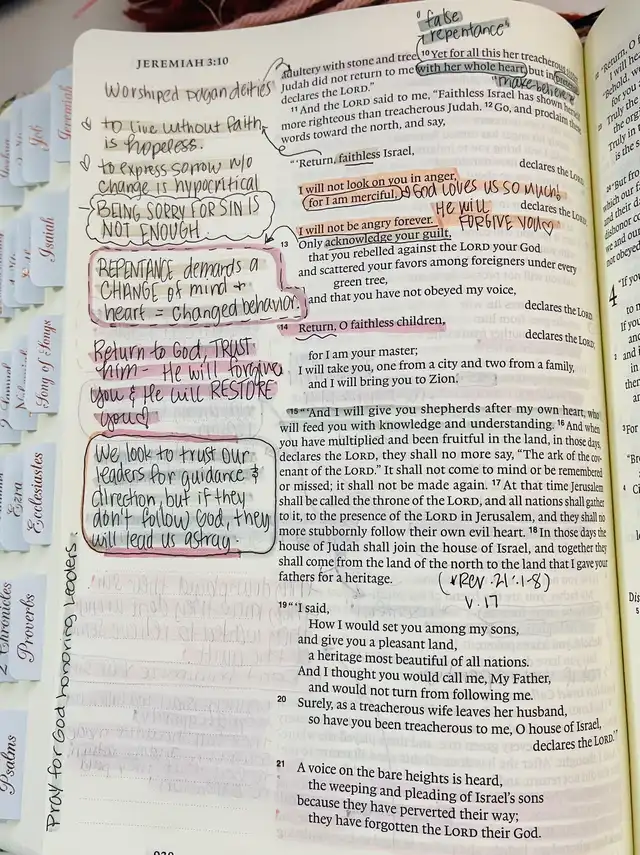 "false
repentance"
JEREMIAH 3:10
adultery with stone and tree. 10 Yet for all this her treacherous
Judah did not return to me with her whole heart, but in
declares the LORD."
"make-believe"
11 And the LORD said to me, "Faithless Israel has shown
more righteous than treacherous Judah. 12 Go, and proclaim these
words toward the north, and say,
"'Return, faithless Israel,
declares the LORD.
I will not look on you in anger,
for I am merciful, God loves US SO much!
declares the LORD;
He will
I will not be angry forever. FORGIVE YOU
13 Only acknowledge your guilt,
that you rebelled against the LORD your God
and scattered your favors among foreigners under every
green tree,
and that you have not obeyed my voice,
declares the LORD.
14 Return, O faithless children,
declares the LORD;
for I am your master;
I will take you, one from a city and two from a family,
and I will bring you to Zion.
15 "'And I will give you shepherds after my own heart, who
will feed you with knowledge and understanding. 16 And when
you have multiplied and been fruitful in the land, in those days,
declares the LORD, they shall no more say, "The ark of the cov-
enant of the LORD." It shall not come to mind or be remembered
or missed; it shall not be made again. 17 At that time Jerusalem
shall be called the throne of the LORD, and all nations shall gather
to it, to the presence of the LORD in Jerusalem, and they shall no
more stubbornly follow their own evil heart. 18 In those days the
house of Judah shall join the house of Israel, and together they
shall come from the land of the north to the land that I gave your
fathers for a heritage.
(*Rev. 21:1-8)
V. 17
19 "'I said,
How I would set you among my sons,
and give you a pleasant land,
a heritage most beautiful of all nations.
And I thought you would call me, My Father,
and would not turn from following me.
20 Surely, as a treacherous wife leaves her husband,
so have you been treacherous to me, O house of Israel,
declares the LORD.'"
21 A voice on the bare heights is heard,
the weeping and pleading of Israel's sons
because they have perverted their way;
they have forgotten the LORD their God.
Worshiped pagan deities
to live without faith
is hopeless.
to express sorrow w/o
change is hypocritical
BEING SORRY FOR SIN IS
NOT ENOUGH.
REPENTANCE demands a
CHANGE of mind +
heart = changed behavior.
Return to God, TRUST
him - He will forgive
you & He will RESTORE
you
We look to trust our
leaders for guidance &
direction, but if they
don't follow God, they
will lead us astray.
Pray for God honoring Leaders.
Jeremiah
Job
Isaiah
Song of Songs
Ecclesiastes
Ezra
Proverbs
2 Chronicles
Psalms
4